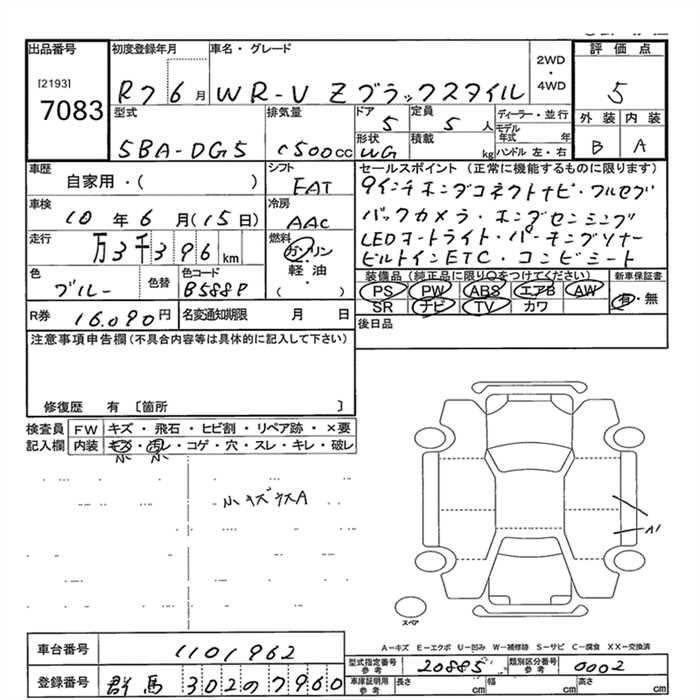 出品番号
[2193]
7083
初度登録年月
R7 6月
車名・グレード
WR-V Zブラックスタイル
2WD
・
4WD
評価点
5
型式
5BA-DG5
排気量
1500cc
ドア
5
定員
5人
形状
WG
積載
kg
ディーラー・並行
モデル年式 年
ハンドル 左・右
外装 内装
B A
車歴
自家用・( )
シフト
FAT
セールスポイント (正常に機能するものに限ります)
9インチホンダコネクトナビ・フルセグ
バックカメラ・ホンダセンシング
LEDオートライト・パーキングソナー
ビルトインETC・コンビシート
車検
10年6月(15日)
冷房
AAC
走行
万3千396km
燃料
ガソリン
軽・油
( )
色
ブルー
色替
色コード
B588P
装備品(純正品に限り○をつけてください)
PS PW ABS エアB AW
SR ナビ TV カワ
新車保証書
有・無
R券 16,090円
名変通知期限 月 日
後日品
注意事項申告欄(不具合内容等は具体的に記入して下さい)
修復歴 有 〔箇所 〕
検査員記入欄
FW キズ・飛石・ヒビ割・リペア跡・×要
内装 キズ・汚レ・コゲ・穴・スレ・キレ・破レ
小 小
小キズウスA
A1
スペア
A－キズ E－エクボ U－凹み W－補修跡 S－サビ C－腐食 XX－交換済
車台番号 1101962
登録番号 群馬 302の7960
型式指定番号 参考 20885
類別区分番号 参考 0002
車庫証明用 参考 長さ cm 幅 cm 高さ cm